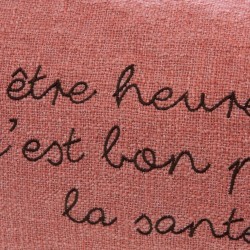 être heure
c'est bon p
la sant